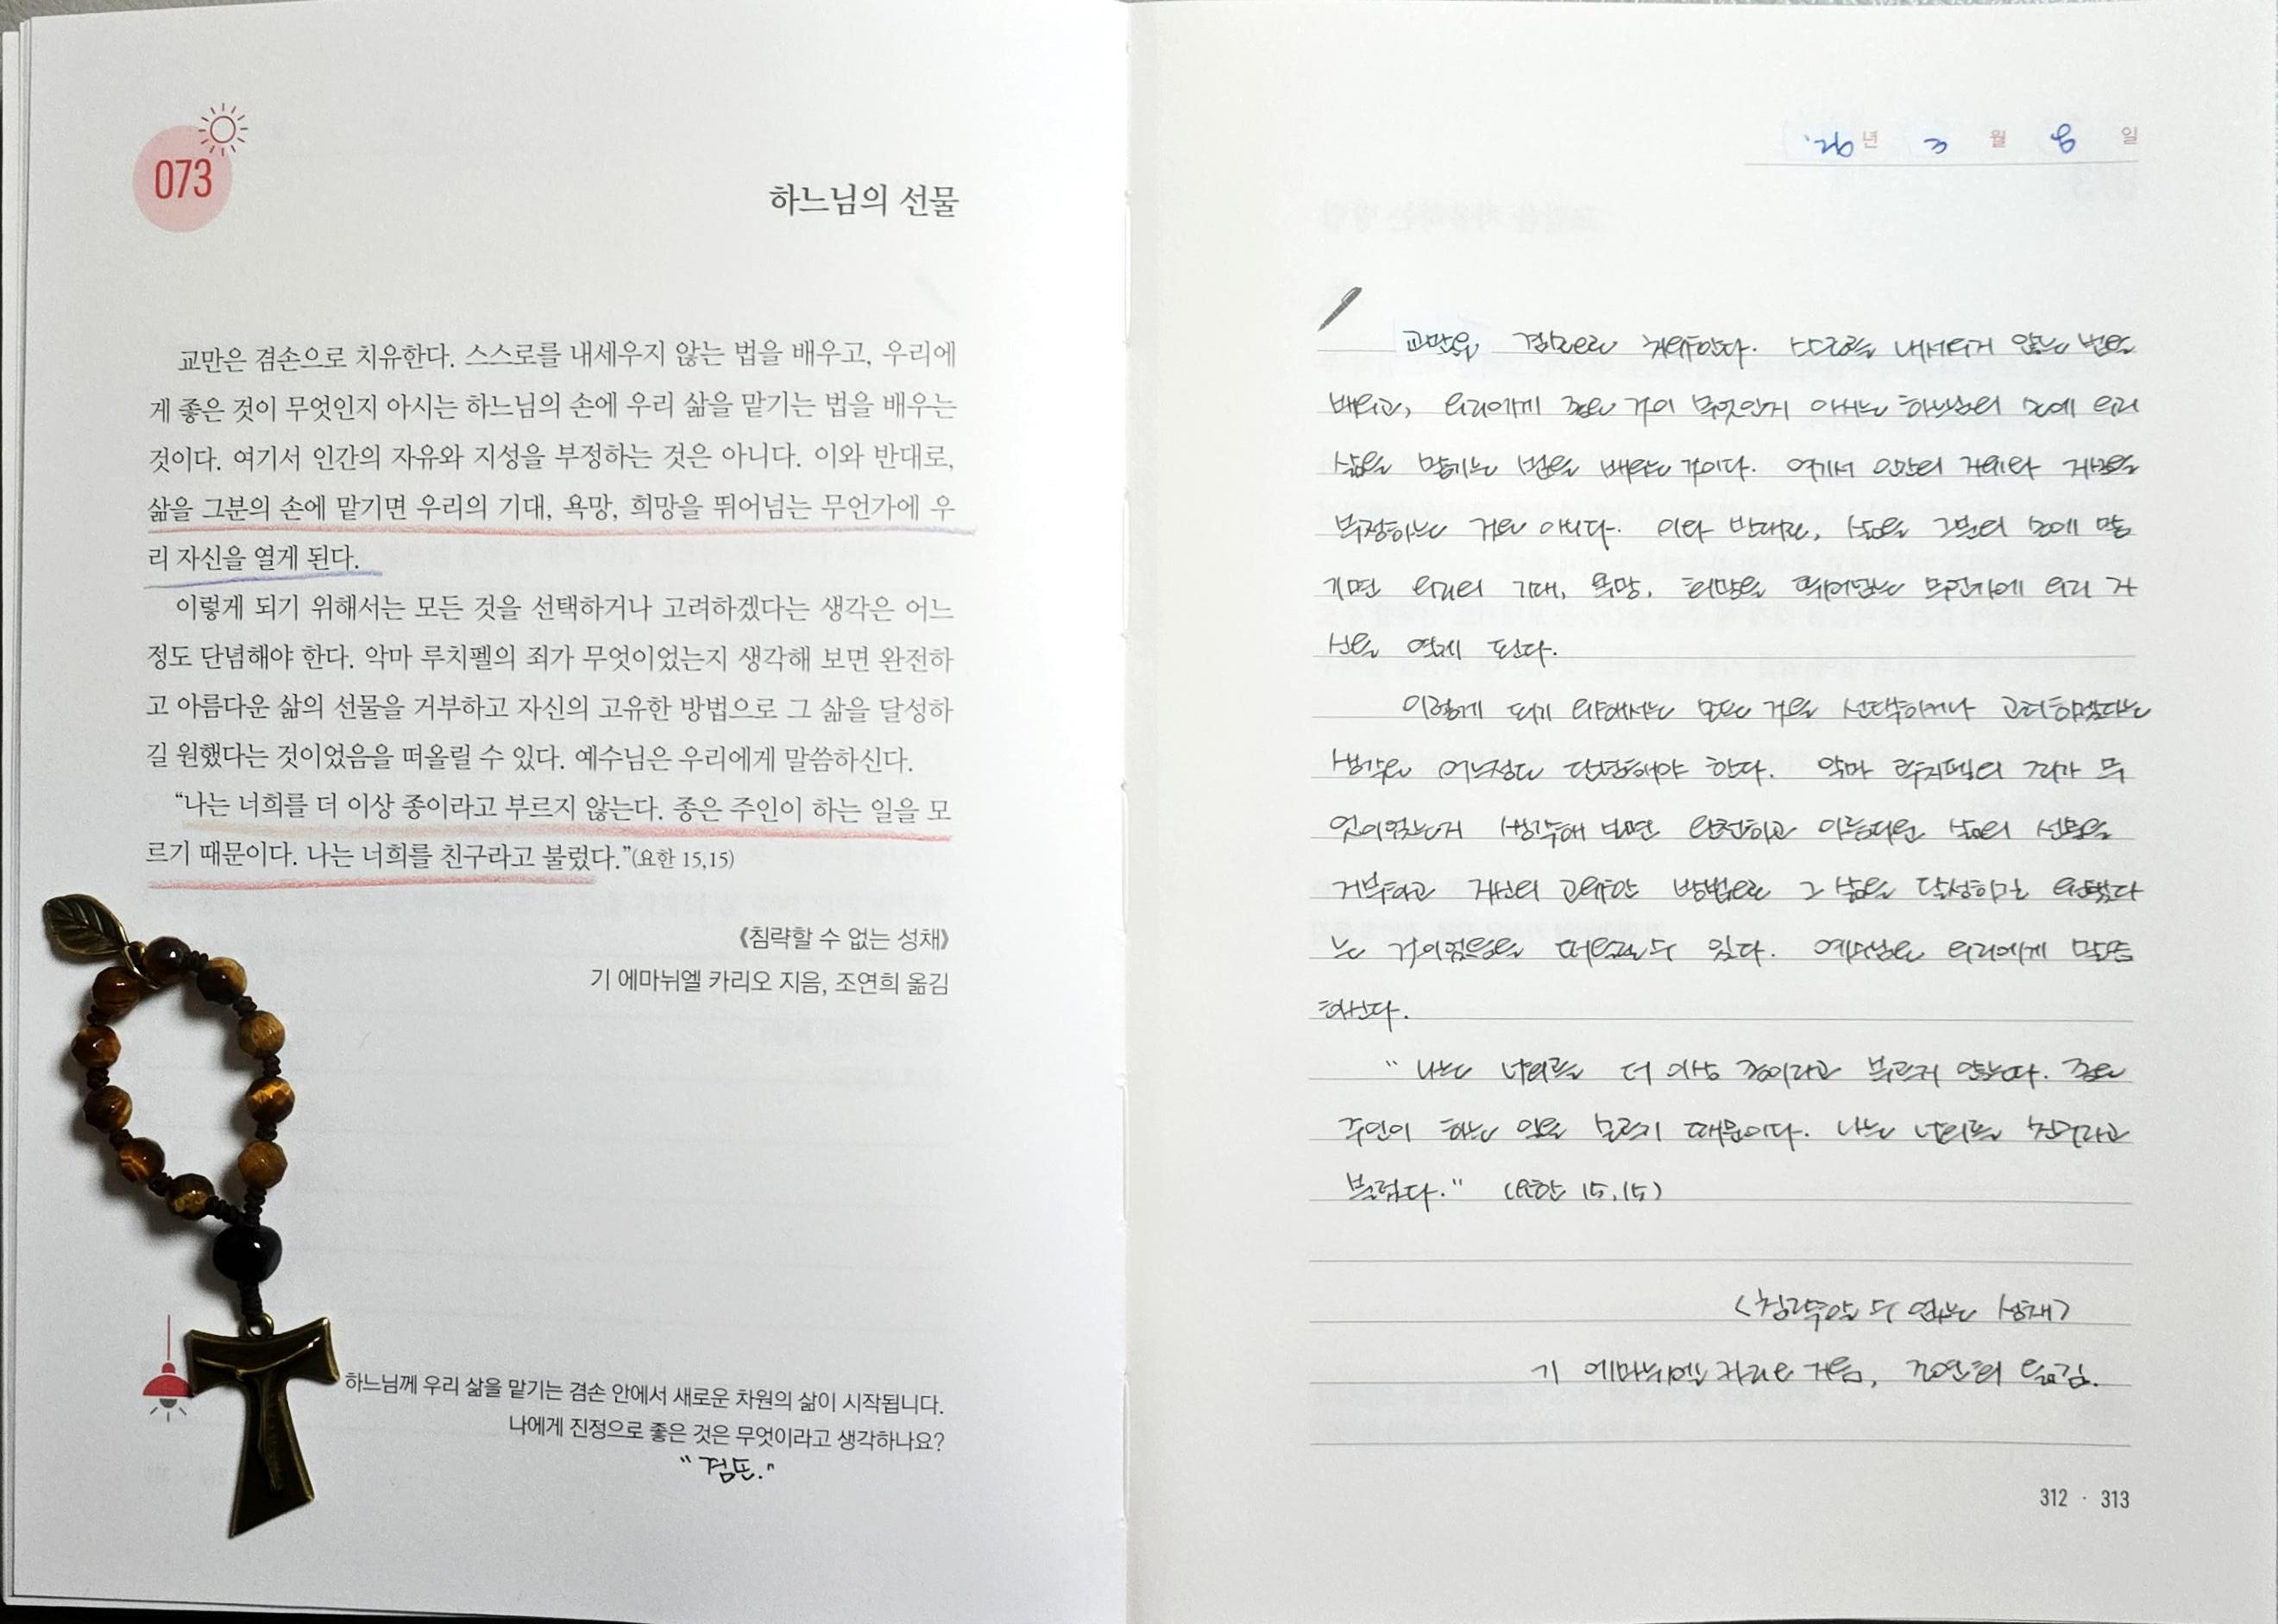 073
하느님의 선물
교만은 겸손으로 치유한다. 스스로를 내세우지 않는 법을 배우고, 우리에
게 좋은 것이 무엇인지 아시는 하느님의 손에 우리 삶을 맡기는 법을 배우는
것이다. 여기서 인간의 자유와 지성을 부정하는 것은 아니다. 이와 반대로,
삶을 그분의 손에 맡기면 우리의 기대, 욕망, 희망을 뛰어넘는 무언가에 우
리 자신을 열게 된다.
이렇게 되기 위해서는 모든 것을 선택하거나 고려하겠다는 생각은 어느
정도 단념해야 한다. 악마 루치펠의 죄가 무엇이었는지 생각해 보면 완전하
고 아름다운 삶의 선물을 거부하고 자신의 고유한 방법으로 그 삶을 달성하
길 원했다는 것이었음을 떠올릴 수 있다. 예수님은 우리에게 말씀하신다.
“나는 너희를 더 이상 종이라고 부르지 않는다. 종은 주인이 하는 일을 모
르기 때문이다. 나는 너희를 친구라고 불렀다.”(요한 15,15)
《침략할 수 없는 성채》
기 에마뉘엘 카리오 지음, 조연희 옮김
하느님께 우리 삶을 맡기는 겸손 안에서 새로운 차원의 삶이 시작됩니다.
나에게 진정으로 좋은 것은 무엇이라고 생각하나요?
"겸손."
'26년 3월 8일
교만은 겸손으로 치유한다. 스스로를 내세우지 않는 법을
배우고, 우리에게 좋은 것이 무엇인지 아시는 하느님의 손에 우리
삶을 맡기는 법을 배우는 것이다. 여기서 인간의 자유와 지성을
부정하는 것은 아니다. 이와 반대로, 삶을 그분의 손에 맡
기면 우리의 기대, 욕망, 희망을 뛰어넘는 무언가에 우리 자
신을 열게 된다.
이렇게 되기 위해서는 모든 것을 선택하거나 고려하겠다는
생각은 어느정도 단념해야 한다. 악마 루치펠의 죄가 무
엇이었는지 생각해 보면 완전하고 아름다운 삶의 선물을
거부하고 자신의 고유한 방법으로 그 삶을 달성하길 원했다
는 것이었음을 떠올릴 수 있다. 예수님은 우리에게 말씀
하신다.
"나는 너희를 더 이상 종이라고 부르지 않는다. 종은
주인이 하는 일을 모르기 때문이다. 나는 너희를 친구라고
불렀다." (요한 15,15)
<침략할 수 없는 성채>
기 에마뉘엘 카리오 지음, 조연희 옮김.
312 · 313